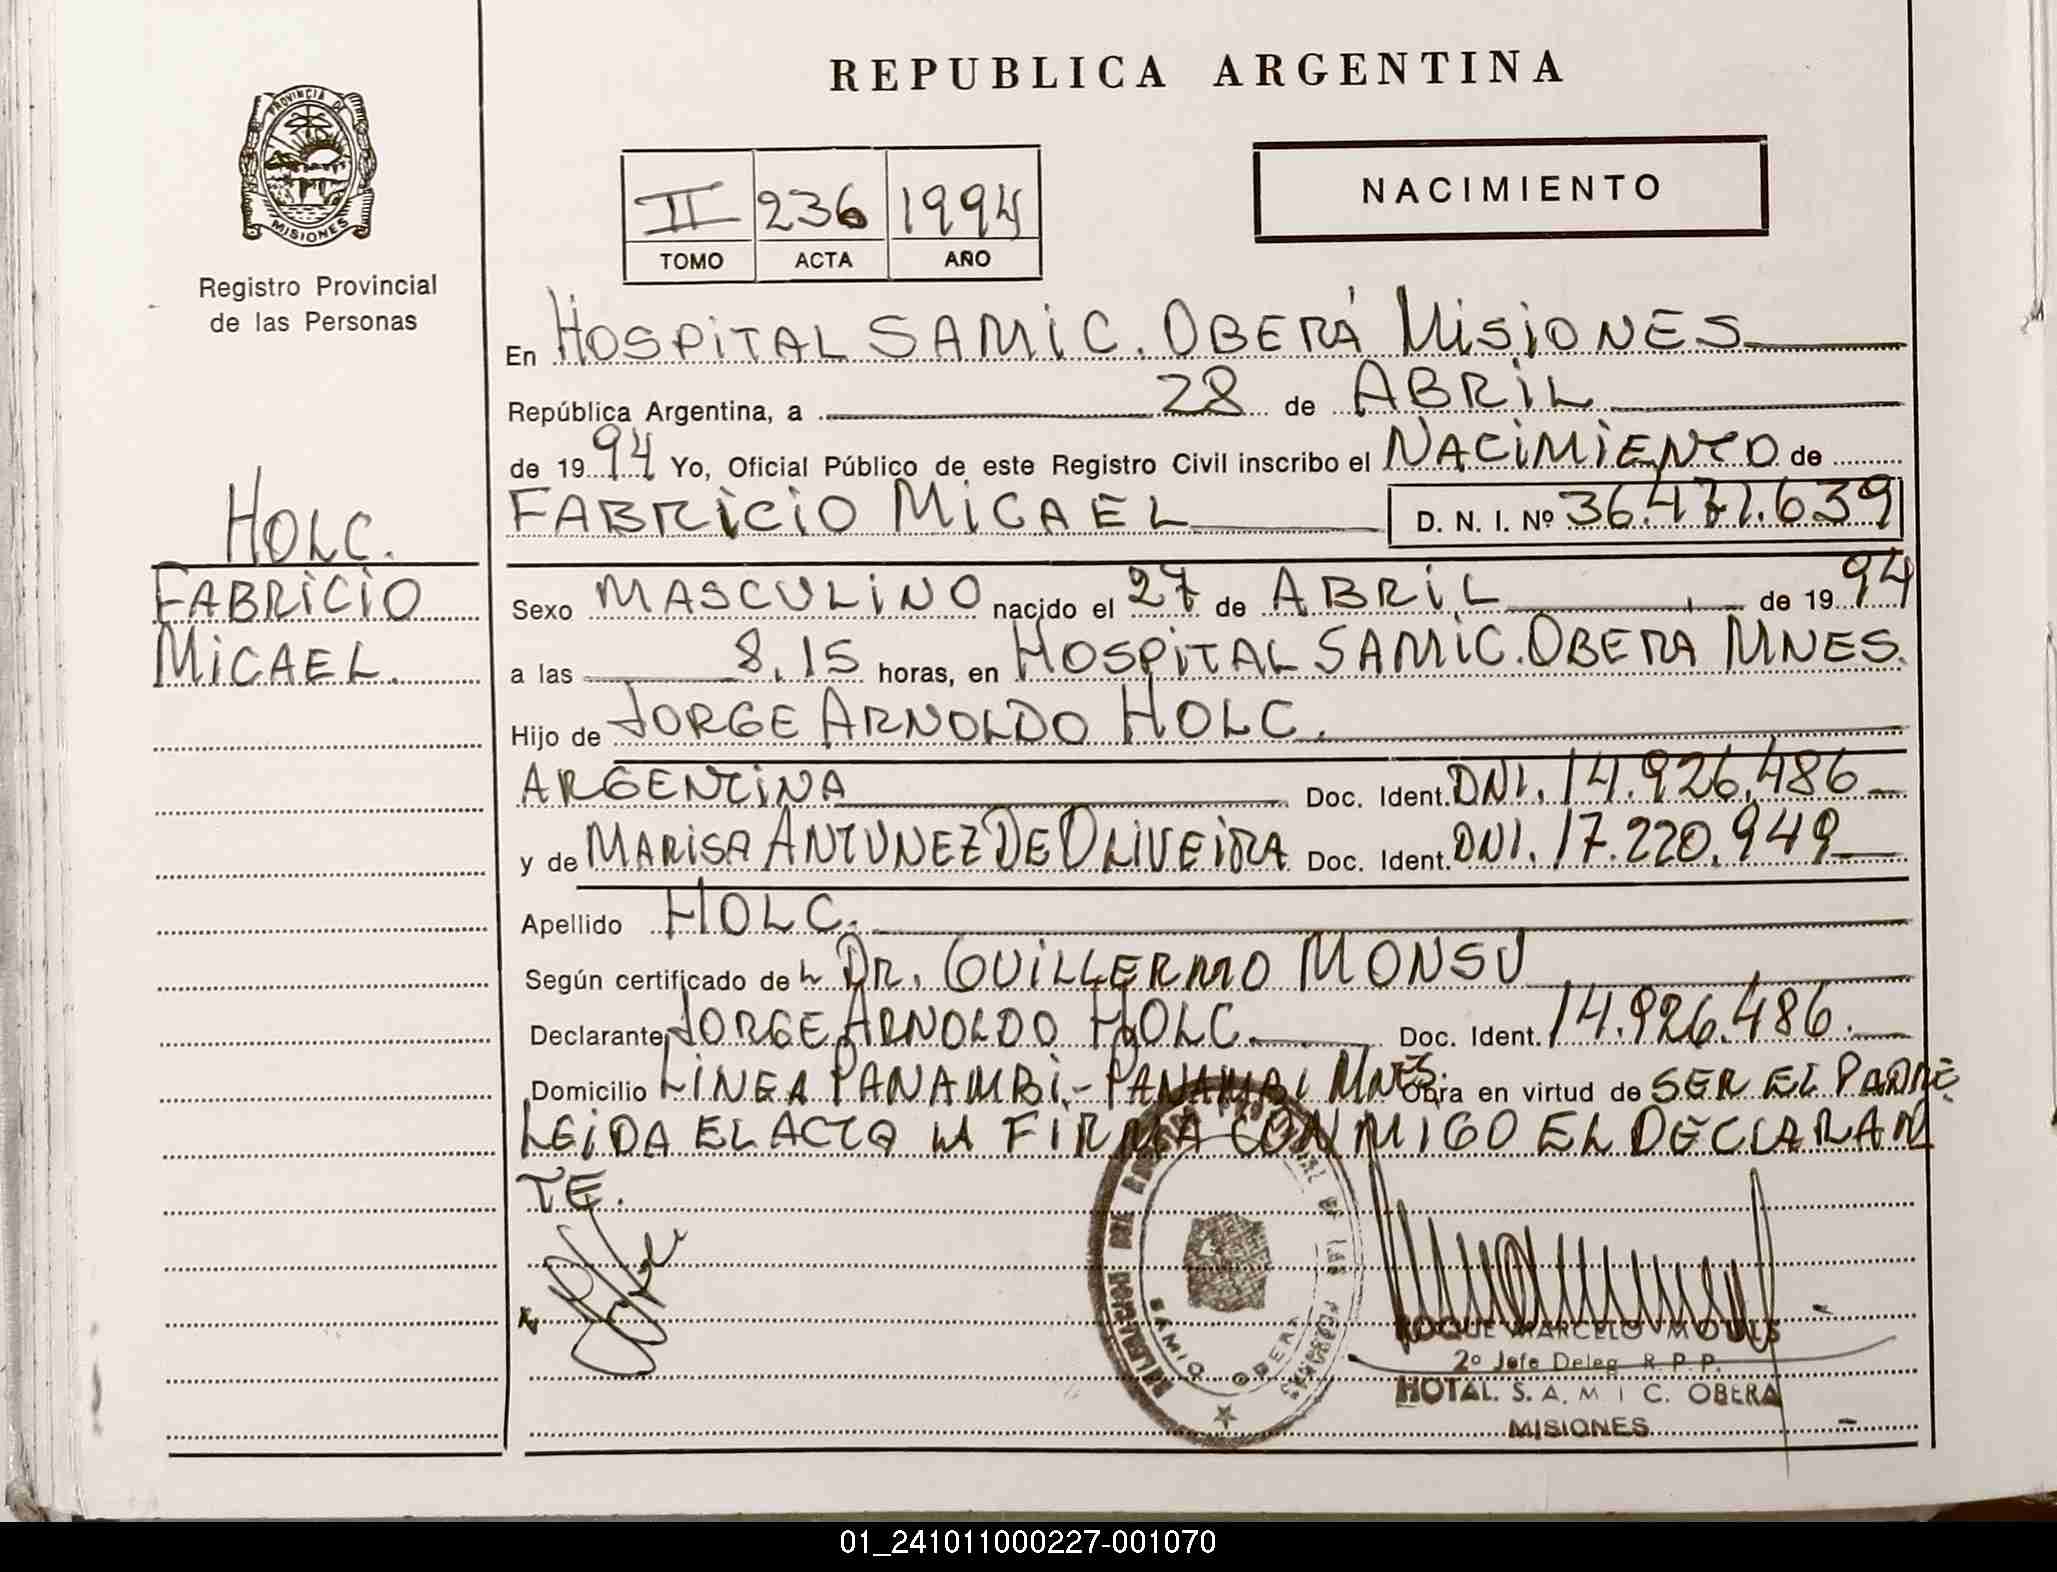 REPUBLICA ARGENTINA
PROVINCIA DE
MISIONES
Registro Provincial
de las Personas
II 236 1994
TOMO ACTA AÑO
NACIMIENTO
En HOSPITAL SAMIC. OBERÁ MISIONES
República Argentina, a 28 de ABRIL
de 1994 Yo, Oficial Público de este Registro Civil inscribo el NACIMIENTO de
FABRICIO MICAEL D. N. I. Nº 36.471.639
HOLC.
FABRICIO
MICAEL.
Sexo MASCULINO nacido el 27 de ABRIL de 1994
a las 8,15 horas, en HOSPITAL SAMIC. OBERA MNES.
Hijo de JORGE ARNOLDO HOLC.
ARGENTINA Doc. Ident. DNI. 14.926.486
y de MARISA ANTUNEZ DE OLIVEIRA Doc. Ident. DNI. 17.220.949
Apellido HOLC.
Según certificado del DR. GUILLERMO MONSU
Declarante JORGE ARNOLDO HOLC. Doc. Ident. 14.926.486.
Domicilio LINEA PANAMBI.- PANAMBI MNES. Obra en virtud de SER EL PADRE
LEIDA EL ACTA LA FIRMA CONMIGO EL DECLARAN
TE.
SAMIC OBERA
ROQUE MARCELO
2º Jefe Deleg. R. P. P.
HOTAL. S. A. M I C. OBERA
MISIONES
01_241011000227-001070